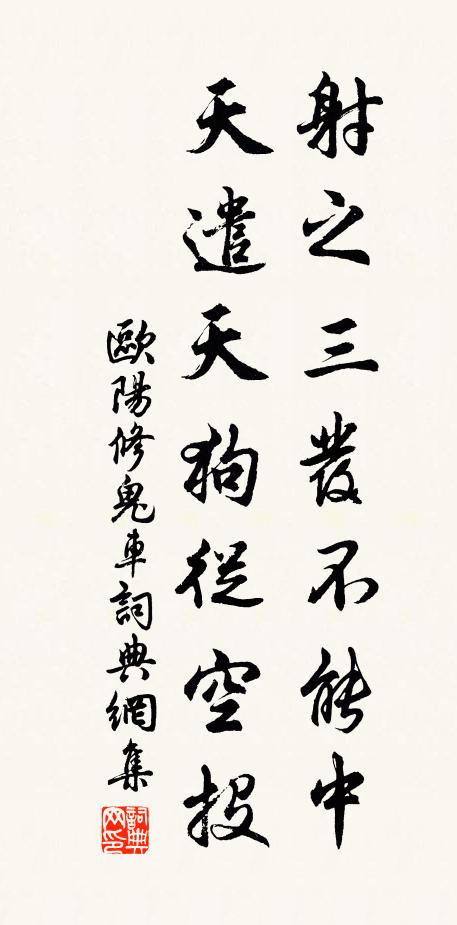 射之三發不能中
天遣天狗從空投
歐陽修鬼車詞典網集
詞典網印